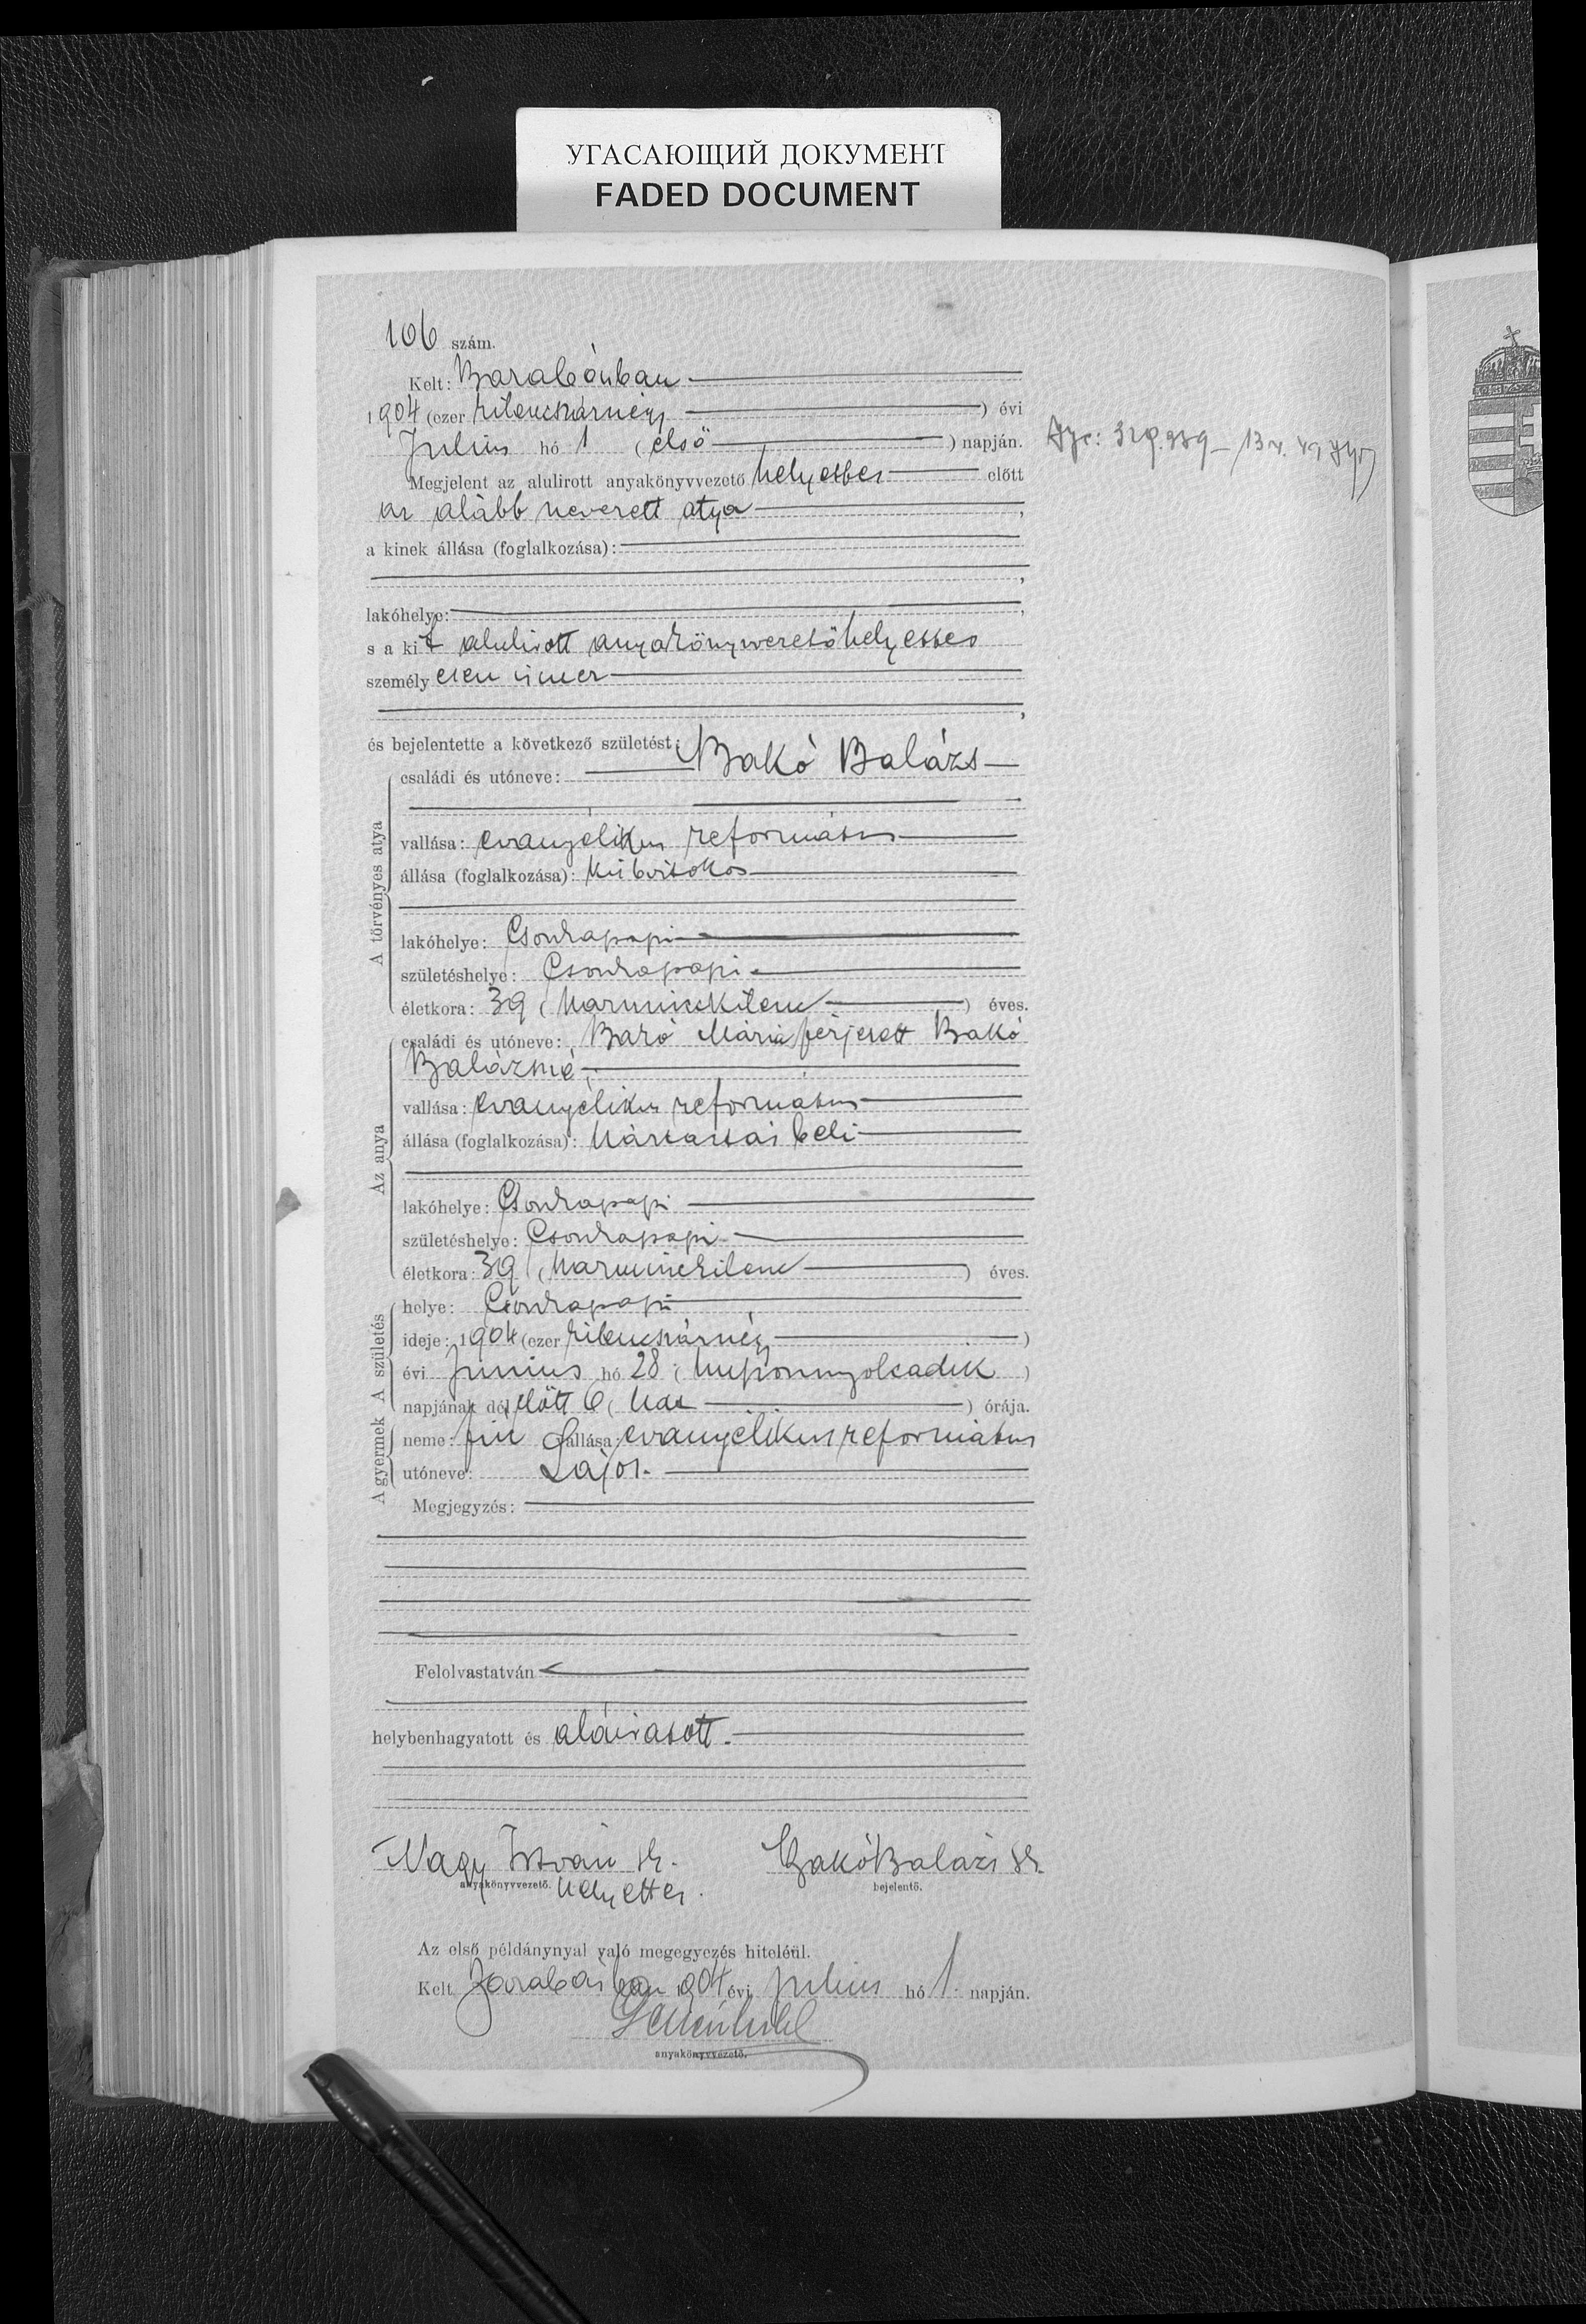 УГАСАЮЩИЙ ДОКУМЕНТ
FADED DOCUMENT
106 szám.
Kelt: Barabásban
1904 (ezer kilencszáznégy) évi
Julius hó 1 (első) napján.
Megjelent az alulirott anyakönyvvezető helyettes előtt
az alább nevezett atya,
a kinek állása (foglalkozása):
,
lakóhelye:,
s a kit alulirott anyakönyvvezető helyettes
személyesen ismer
,
és bejelentette a következő születést:
A törvényes atya
családi és utóneve: Bakó Balázs
vallása: evangélikus református
állása (foglalkozása): kisbirtokos
lakóhelye: Csonkapapi
születéshelye: Csonkapapi
életkora: 39 (harminckilenc) éves.
Az anya
családi és utóneve: Bakó Mária férjezett Bakó
Balázsné,
vallása: evangélikus református
állása (foglalkozása): háztartásbeli
lakóhelye: Csonkapapi
születéshelye: Csonkapapi
életkora: 39 (harminckilenc) éves.
A születés
helye: Csonkapapi
ideje: 1904 (ezer kilencszáznégy)
évi Junius hó 28 (huszonnyolcadik)
napjának délelőtt 6 (hat) órája.
A gyermek
neme: fiú vallása: evangélikus református
utóneve: Lajos.
Megjegyzés:
Felolvastatván
helybenhagyatott és aláiratott.
Nagy István sk. Bakó Balázs sk.
anyakönyvvezető. helyettes. bejelentő.
Az első példánynyal való megegyezés hiteléül.
Kelt Barabásban 1904 évi Julius hó 1 napján.
anyakönyvvezető.